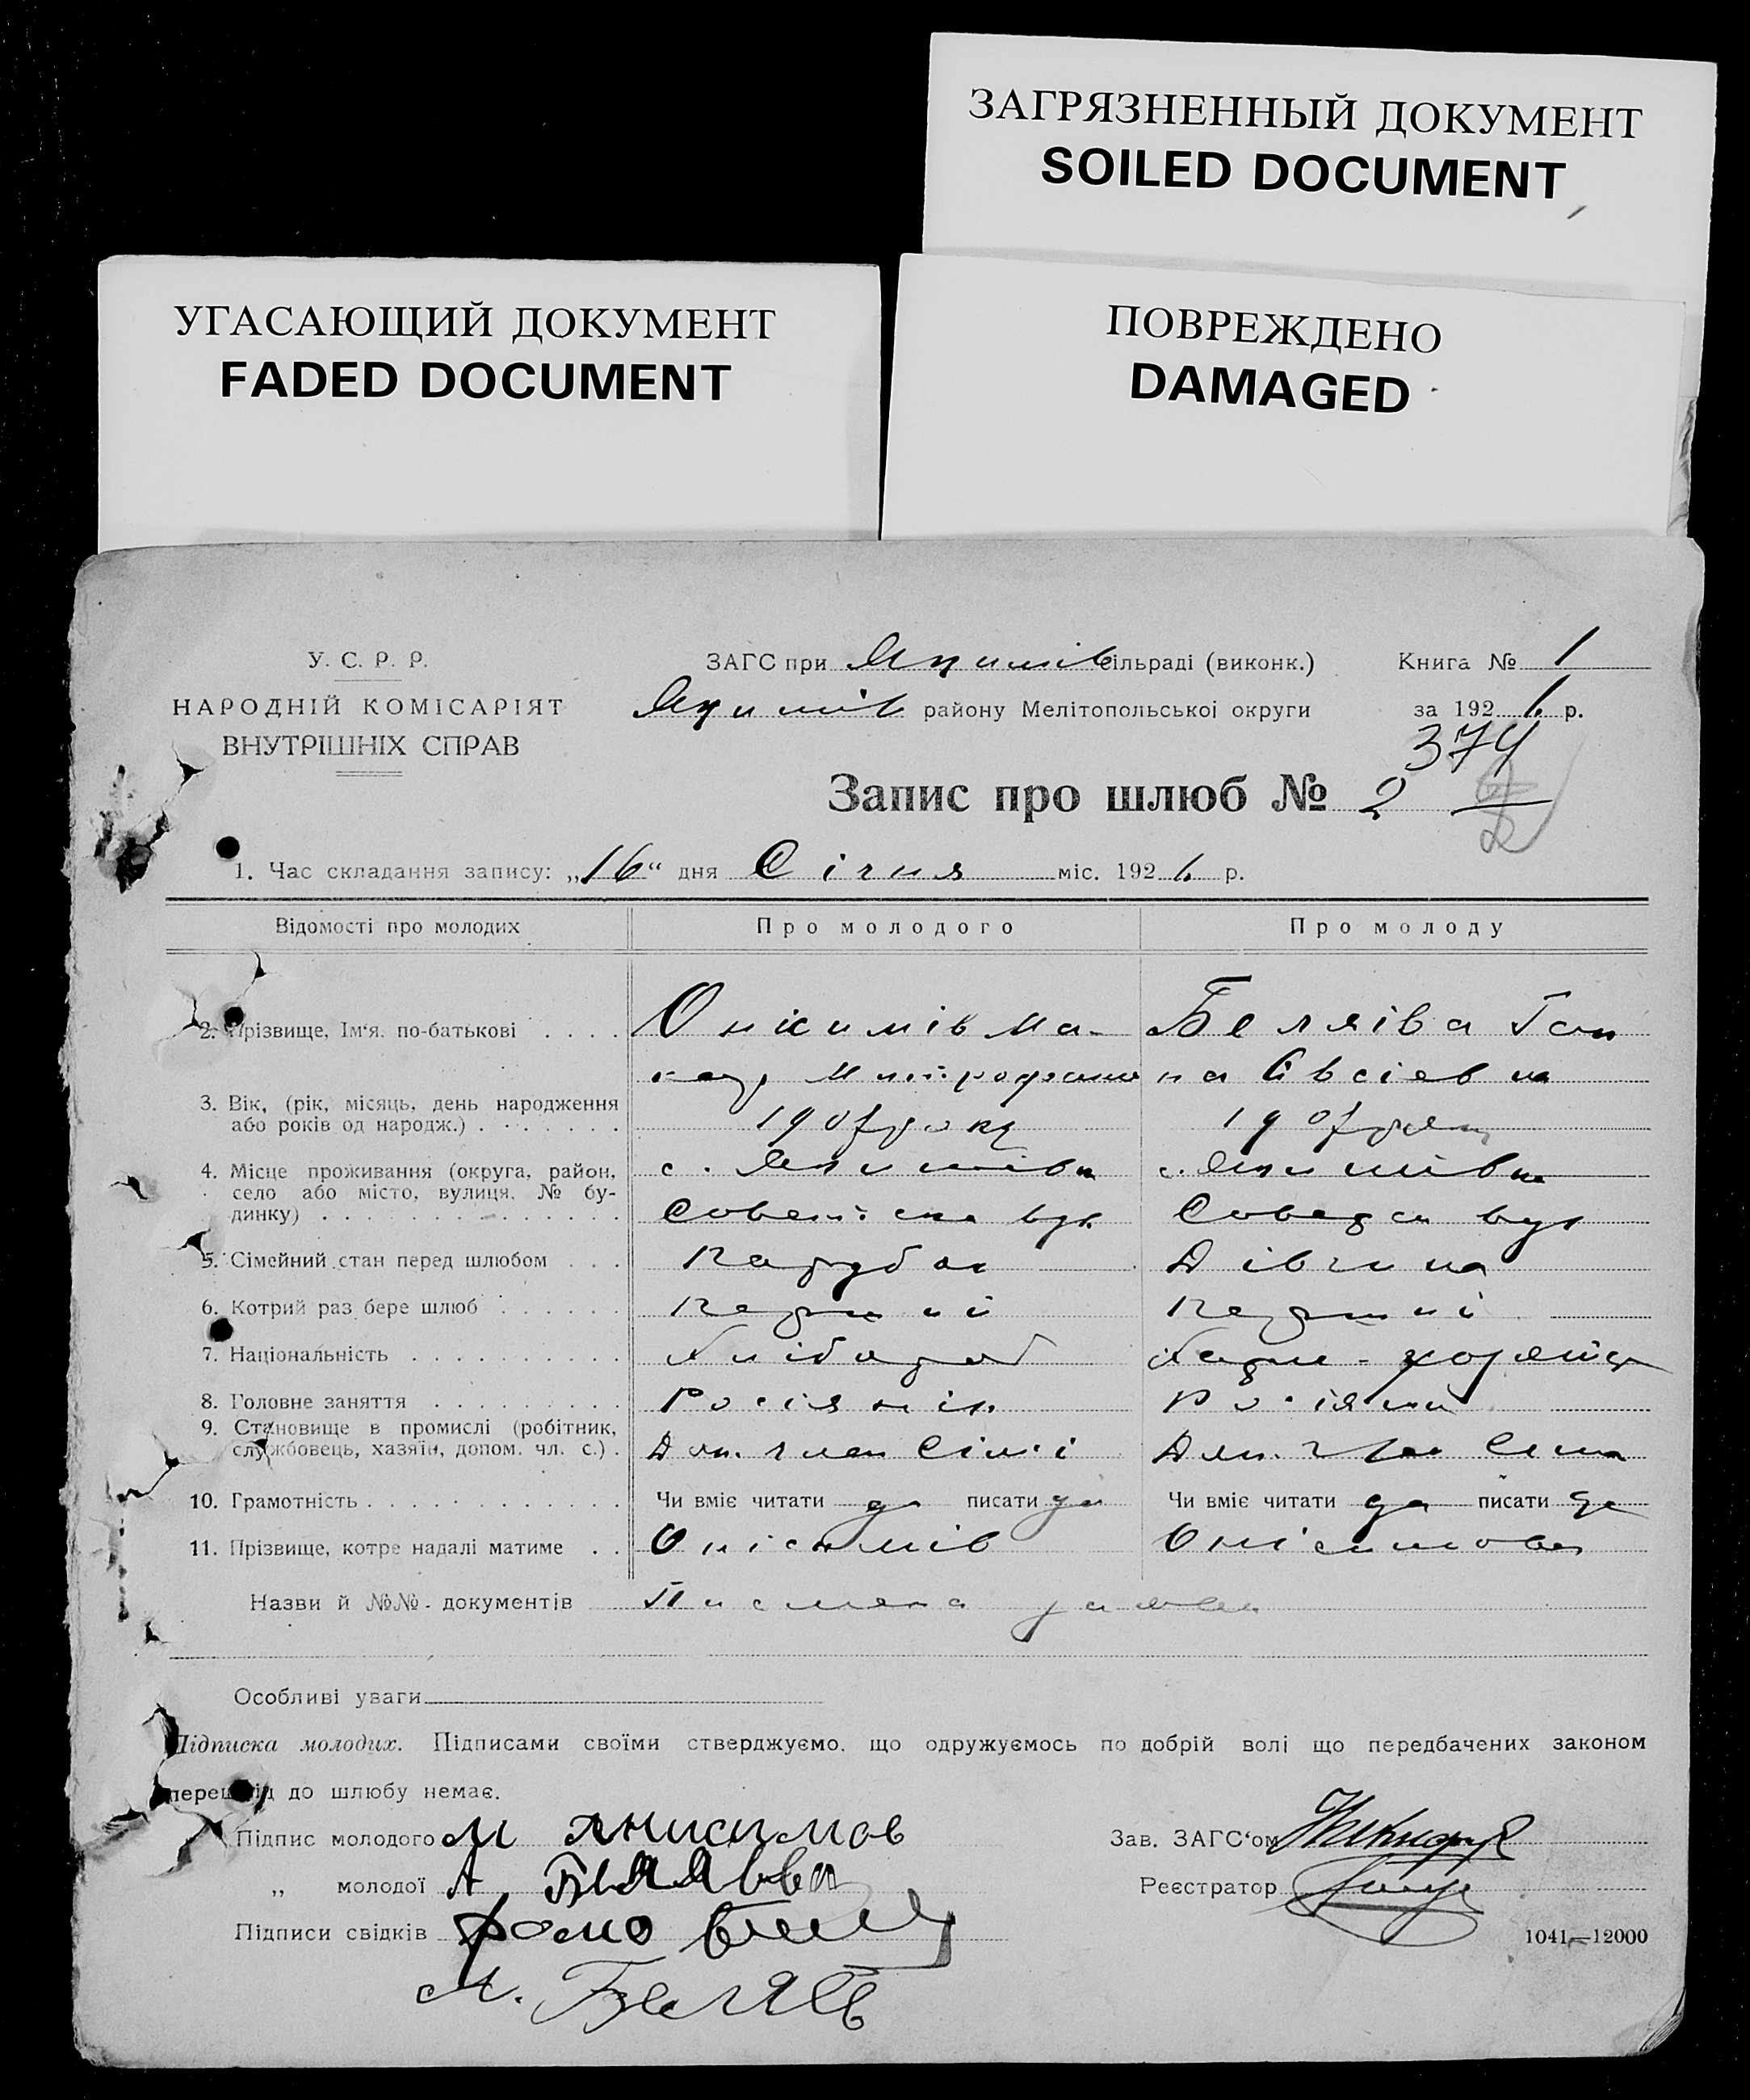 ЗАГРЯЗНЕННЫЙ ДОКУМЕНТ
SOILED DOCUMENT
УГАСАЮЩИЙ ДОКУМЕНТ
FADED DOCUMENT
ПОВРЕЖДЕНО
DAMAGED
У. С. Р. Р.
НАРОДНІЙ КОМІСАРІЯТ
ВНУТРІШНІХ СПРАВ
ЗАГС при Якимів сільраді (виконк.) Книга № 1
Якимів району Мелітопольської округи за 192 6 р.
374
Запис про шлюб № 2
1. Час складання запису: „16“ дня Січня міс. 192 6. р.
Відомості про молодих Про молодого Про молоду
2. Прізвище, Ім'я, по-батькові Онісимів Ма- Беляіва Ган
кар Митрофанов на Євсієвна
3. Вік, (рік, місяць, день народження
або років од народж.) 1907 року 1907 року
4. Місце проживання (округа, район, с. Якимівка с. Якимівка
село або місто, вулиця, № бу-
динку) вул вул
5. Сімейний стан перед шлюбом Парубок Дівчина
6. Котрий раз бере шлюб Перший Перший
7. Національність Хлібороб
8. Головне заняття Росіянін Росіянка
9. Становище в промислі (робітник,
службовець, хазяїн, допом. чл. с.) Доп. член Сімї Доп. член
10. Грамотність Чи вміє читати да писати да Чи вміє читати да писати да
11. Прізвище, котре надалі матиме Онісимів Онісимова
Назви й №№ документів Писмена заява
Особливі уваги
Підписка молодих. Підписами своїми стверджуємо, що одружуємось по добрій волі що передбачених законом
перешкід до шлюбу немає.
Підпис молодого М Анисимов Зав. ЗАГС'ом
„ молодої А. Беляева Реєстратор
Підписи свідків Фома
М. Беляев
1041—12000